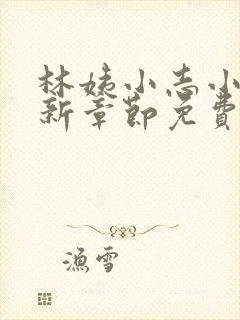 林姨小志小
新章節免費
漁雪